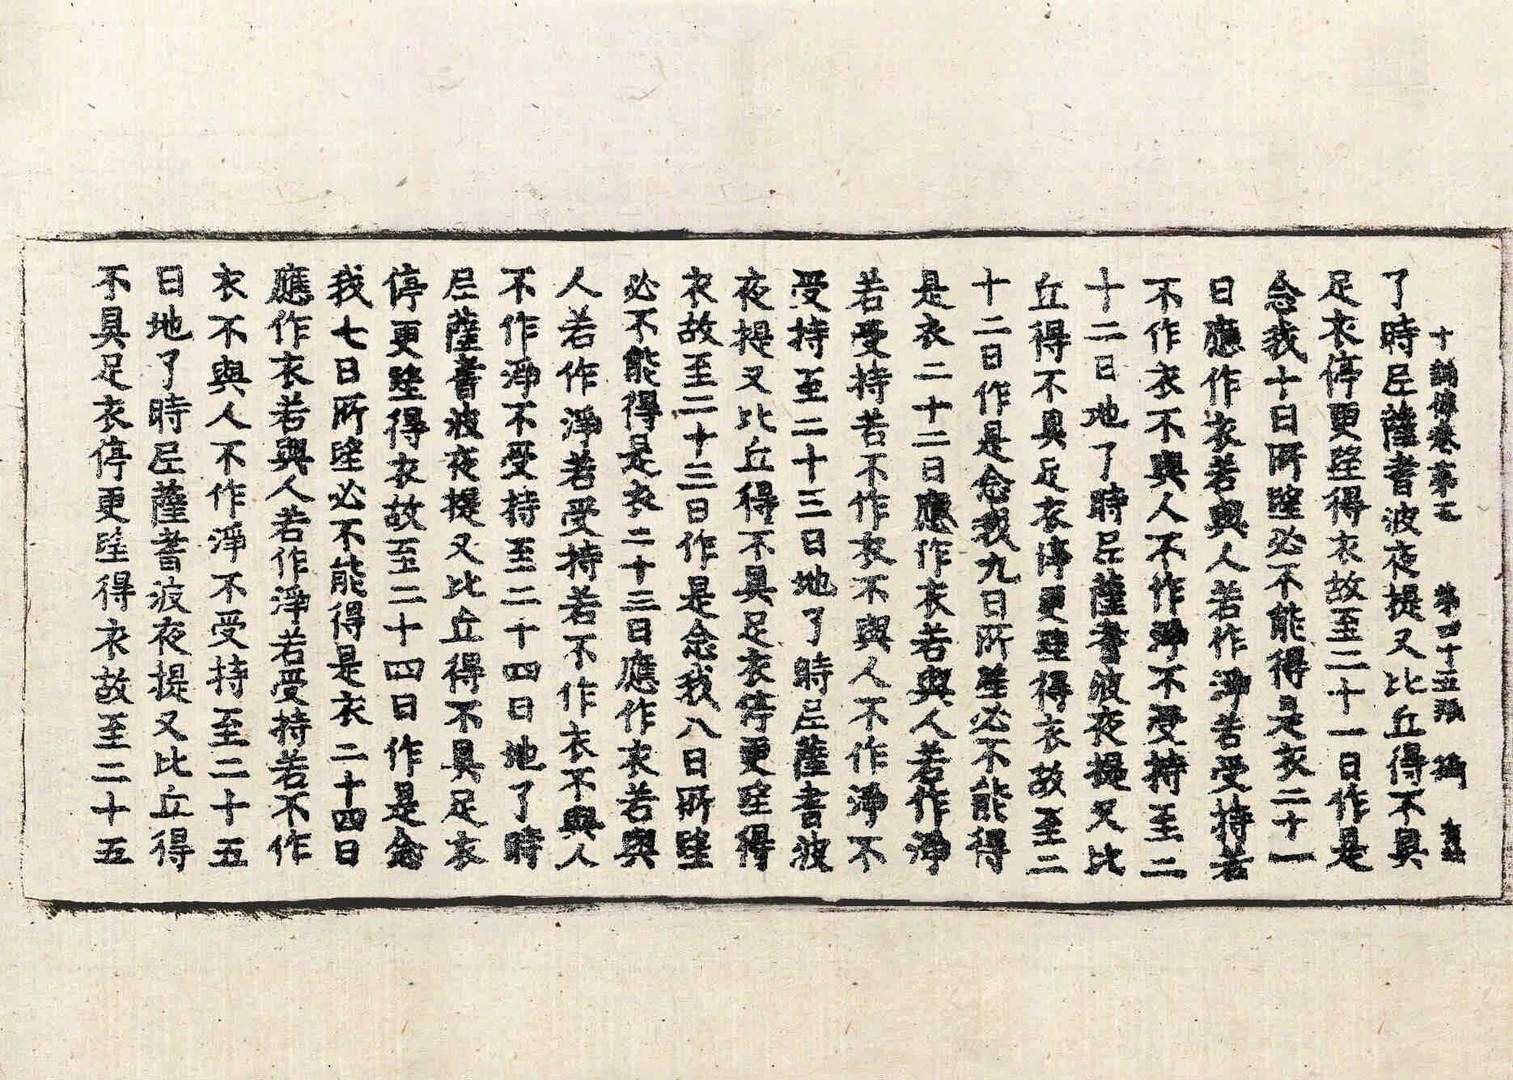 十誦律卷第五 第四十五張 攝
了時尼薩耆波夜提又比丘得不具
足衣停更望得衣故至二十一日作是
念我十日所望必不能得是衣二十一
日應作衣若與人若作淨若受持若
不作衣不與人不作淨不受持至二
十二日地了時尼薩耆波夜提又比
丘得不具足衣停更望得衣故至二
十二日作是念我九日所望必不能得
是衣二十二日應作衣若與人若作淨
若受持若不作衣不與人不作淨不
受持至二十三日地了時尼薩耆波
夜提又比丘得不具足衣停更望得
衣故至二十三日作是念我八日所望
必不能得是衣二十三日應作衣若與
人若作淨若受持若不作衣不與人
不作淨不受持至二十四日地了時
尼薩耆波夜提又比丘得不具足衣
停更望得衣故至二十四日作是念
我七日所望必不能得是衣二十四日
應作衣若與人若作淨若受持若不作
衣不與人不作淨不受持至二十五
日地了時尼薩耆波夜提又比丘得
不具足衣停更望得衣故至二十五